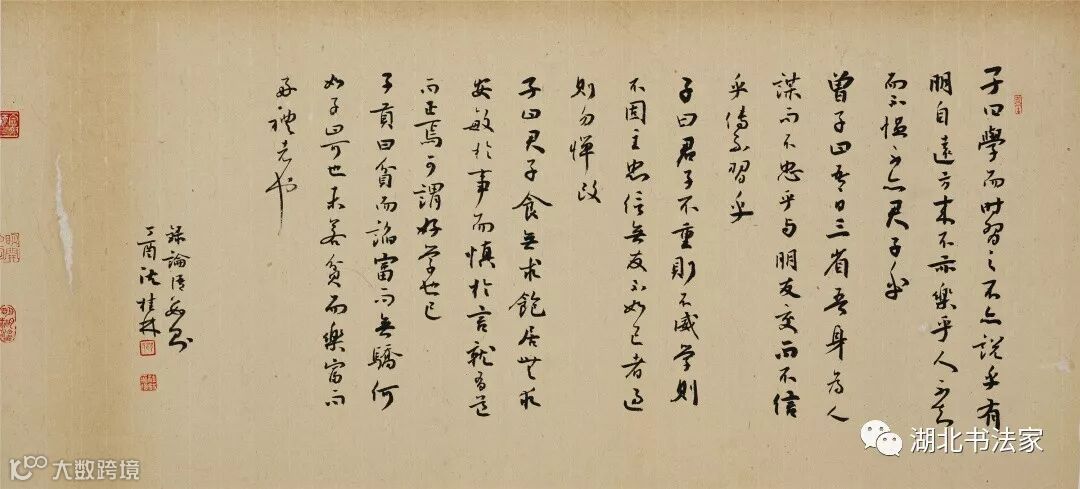 子曰學而時習之不亦說乎有
朋自遠方來不亦樂乎人不知
而不慍不亦君子乎
曾子曰吾日三省吾身為人
謀而不忠乎與朋友交而不信
乎傳不習乎
子曰君子不重則不威学則
不固主忠信無友不如己者過
則勿憚改
子曰君子食無求飽居無求
安敏於事而慎於言就有道
而正焉可謂好学也已
子貢曰貧而諂富而無驕何
如子曰可也未若貧而樂富而
好禮者也
錄論語
丁酉沈桂林
湖北书法家
大数跨境